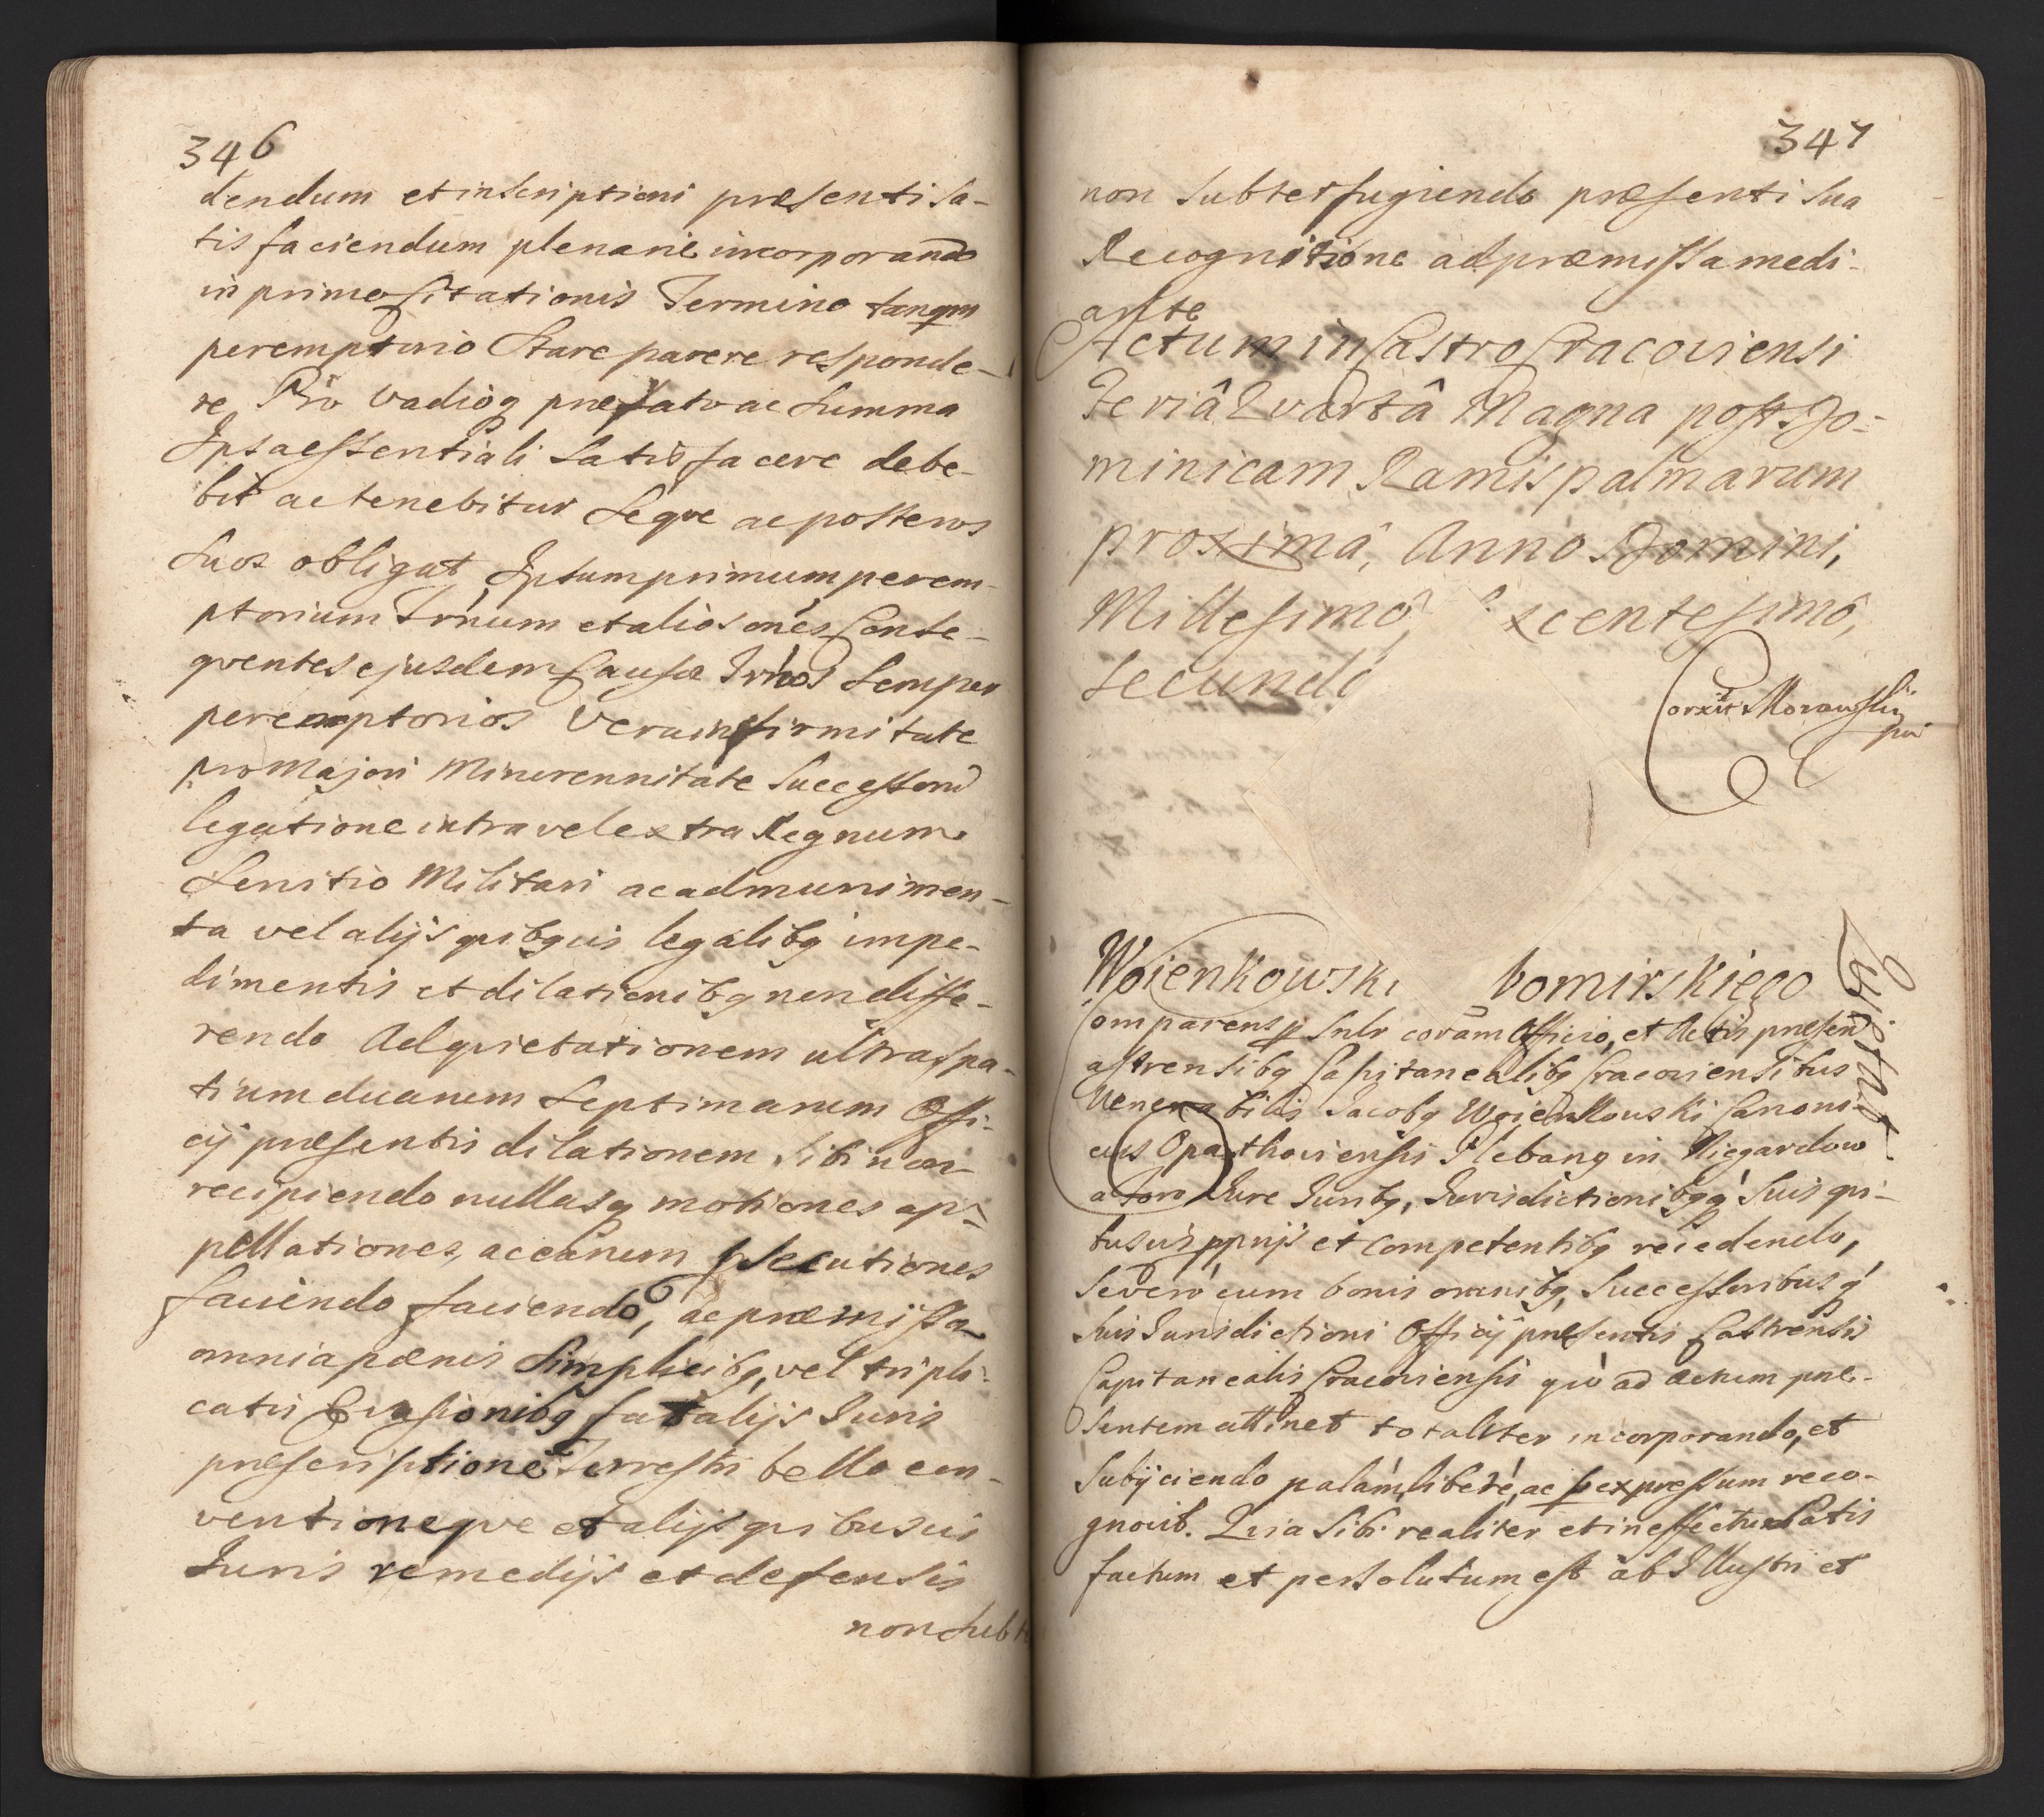 346
dendum et inscriptioni præsenti sa-
tisfaciendum plenarie incorporando
in primo Citationis Termino tanqm
peremptorio Stare parere responde-
re Pro Vadioq præfato ac Summa
Ipsa essentiali Satisfacere debe-
bit ac tenebitur Seqve ac posteros
Suos obligat Ipsum primum perem-
ptorium Trnum et alios oñes Conse-
qventes ejusdem Causæ Trnos Semper
peremptorios Vera infirmitate
pro Majori Minorennitate Successorũ
legatione intra vel extra Regnum
Servitio Militari ac ad munimen-
ta vel alijs qvibqcis legalibq impe-
dimentis et dilationibq non diffe-
rendo Ad qvietationem ultra spa-
tium duarum Septimanarum Offi-
cij præsentis dilationem Sibi non
recipiendo nullasq motiones ap-
pellationes, ac earum psecutiones
faciendo faciendo, ac præmissa
omnia pænis Simplicibq, vel tripli-
catis Evasionibq fatalijs Juris
præscriptione Terrestri bello con-
ventioneqve et alijs qvibuscis
Juris remedijs et defensis
non Subt
347
non Subterfugiendo præsenti Sua
Recognitione ad præmissa medi-
ante
Actum in Castro Cracoviensi
Feriâ Qvartâ Magna post Do-
minicam Ramis palmarum
proximâ, Anno Domini,
Millesimô, xcentesimô,
Secundô
Corxit Morawski
mp
Woienkowski bomirskiego
Qvietat
Comparens p Snlr coram Officio, et Actis præsen
astrensibq Capitanealibq Cracoviensibus
Venerabilis Jacobq Woienkowski Canoni-
cus Opathoviensis Plebanq in Niegardow
a foro Jure Juribq, Jurisdictionibqq Suis qvi-
buscis pprijs et competentibq recedendo,
Severo cum bonis omnibq, Successoribusq
Suis Jurisdictioni Officij præsentis Castrensis
Capitanealis Cracoviensis qvo ad Actum præ-
sentem attinet totaliter incorporando, et
Subijciendo palam libere, ac p expressum reco-
gnovit. Qvia Sibi realiter et in effectu Satis
factum et persolutum est ab Illustri et